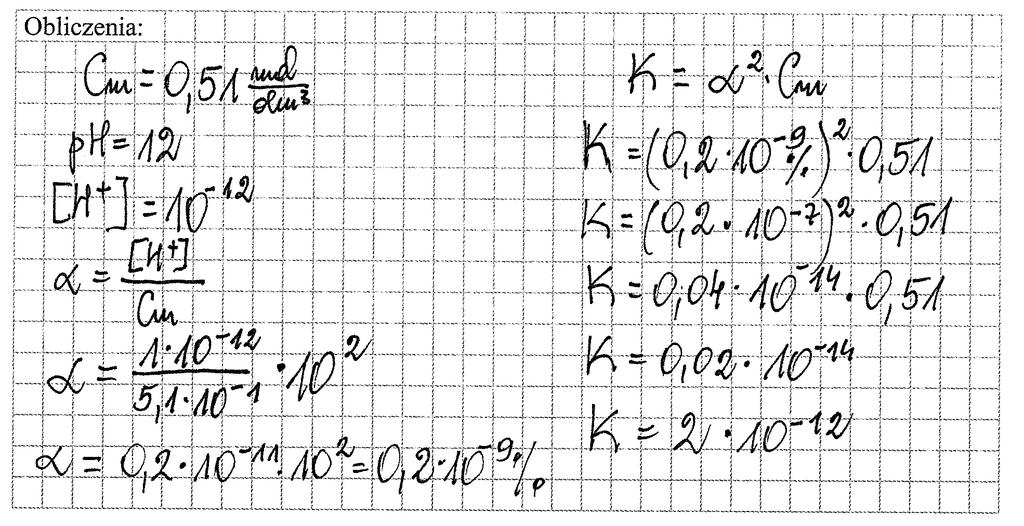 Obliczenia:
Cm = 0,51 mol/dm³
pH = 12
[H⁺] = 10⁻¹²
α = [H⁺]/Cm
α = 1·10⁻¹²/5,1·10⁻¹ · 10²
α = 0,2·10⁻¹¹·10² = 0,2·10⁻⁹%
K = α²·Cm
K = (0,2·10⁻⁹%)²·0,51
K = (0,2·10⁻⁷)²·0,51
K = 0,04·10⁻¹⁴·0,51
K = 0,02·10⁻¹⁴
K = 2·10⁻¹²